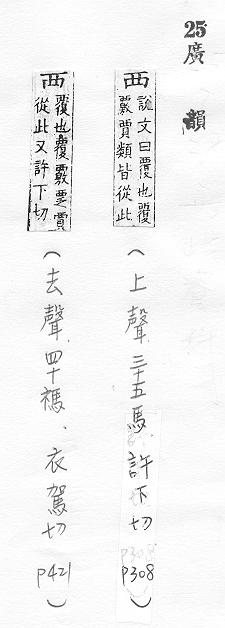 25廣韻
襾 說文曰覆也覆覈賈類皆从此
(上聲.三十五馬.許下切 p308)
襾 覆也覆覈要賈從此又許下切
(去聲.四十禡、衣駕切 p421)